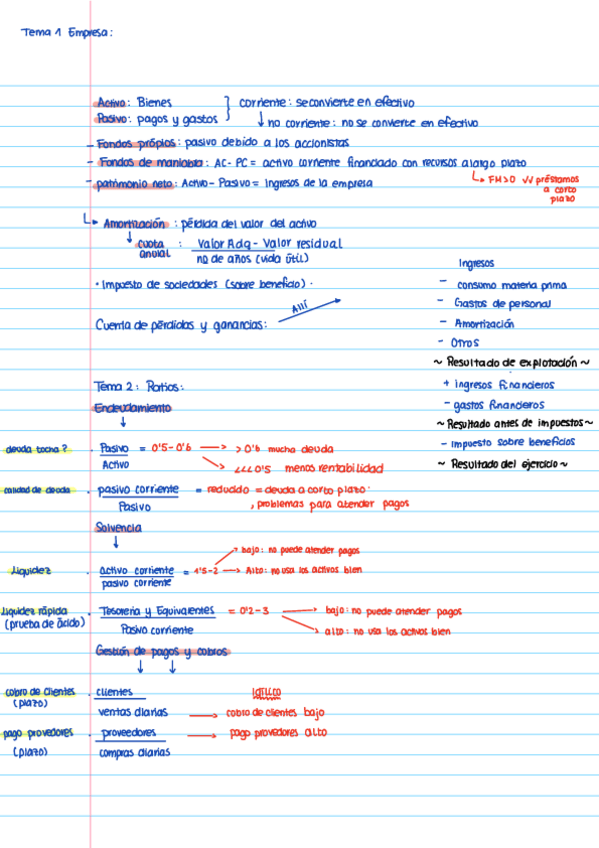 Tema 1 Empresa:
Activo: Bienes } corriente: se convierte en efectivo
Pasivo: pagos y gastos } ↓ no corriente: no se convierte en efectivo
- Fondos própios: pasivo debido a los accionistas
- Fondos de maniobra: AC - PC = activo corriente financiado con recursos a largo plazo
↳ FM>0 √√ préstamos
a corto
plazo
- patrimonio neto: Activo - Pasivo = Ingresos de la empresa
↳ Amortización: pérdida del valor del activo
↓ cuota anual: Valor Adq - Valor residual
no de años (vida útil)
· Impuesto de sociedades (sobre beneficio).
Cuenta de pérdidas y ganancias: Allí
Ingresos
- consumo materia prima
- Gastos de personal
- Amortización
- Otros
~ Resultado de explotación ~
+ ingresos financieros
- gastos financieros
~ Resultado antes de impuestos ~
- impuesto sobre beneficios
~ Resultado del ejercicio ~
Tema 2: Ratios:
Endeudamiento
↓
deuda tocha? · Pasivo = 0'5-0'6 → >0'6 mucha deuda
Activo → <<<0'5 menos rentabilidad
calidad de deuda · pasivo corriente = reducido = deuda a corto plazo.
Pasivo , problemas para atender pagos
Solvencia
↓
bajo: no puede atender pagos
Liquidez · Activo corriente = 1'5-2 → Alto: no usa los activos bien
pasivo corriente
Liquidez rápida · Tesorería y Equivalentes = 0'2-3 → bajo: no puede atender pagos
(prueba de ácido) Pasivo corriente → alto: no usa los activos bien
Gestión de pagos y cobros
↓ ↓
cobro de clientes · clientes
(plazo) ventas diarias → cobro de clientes bajo
pago provedores · proveedores → pago provedores alto
(plazo) compras diarias